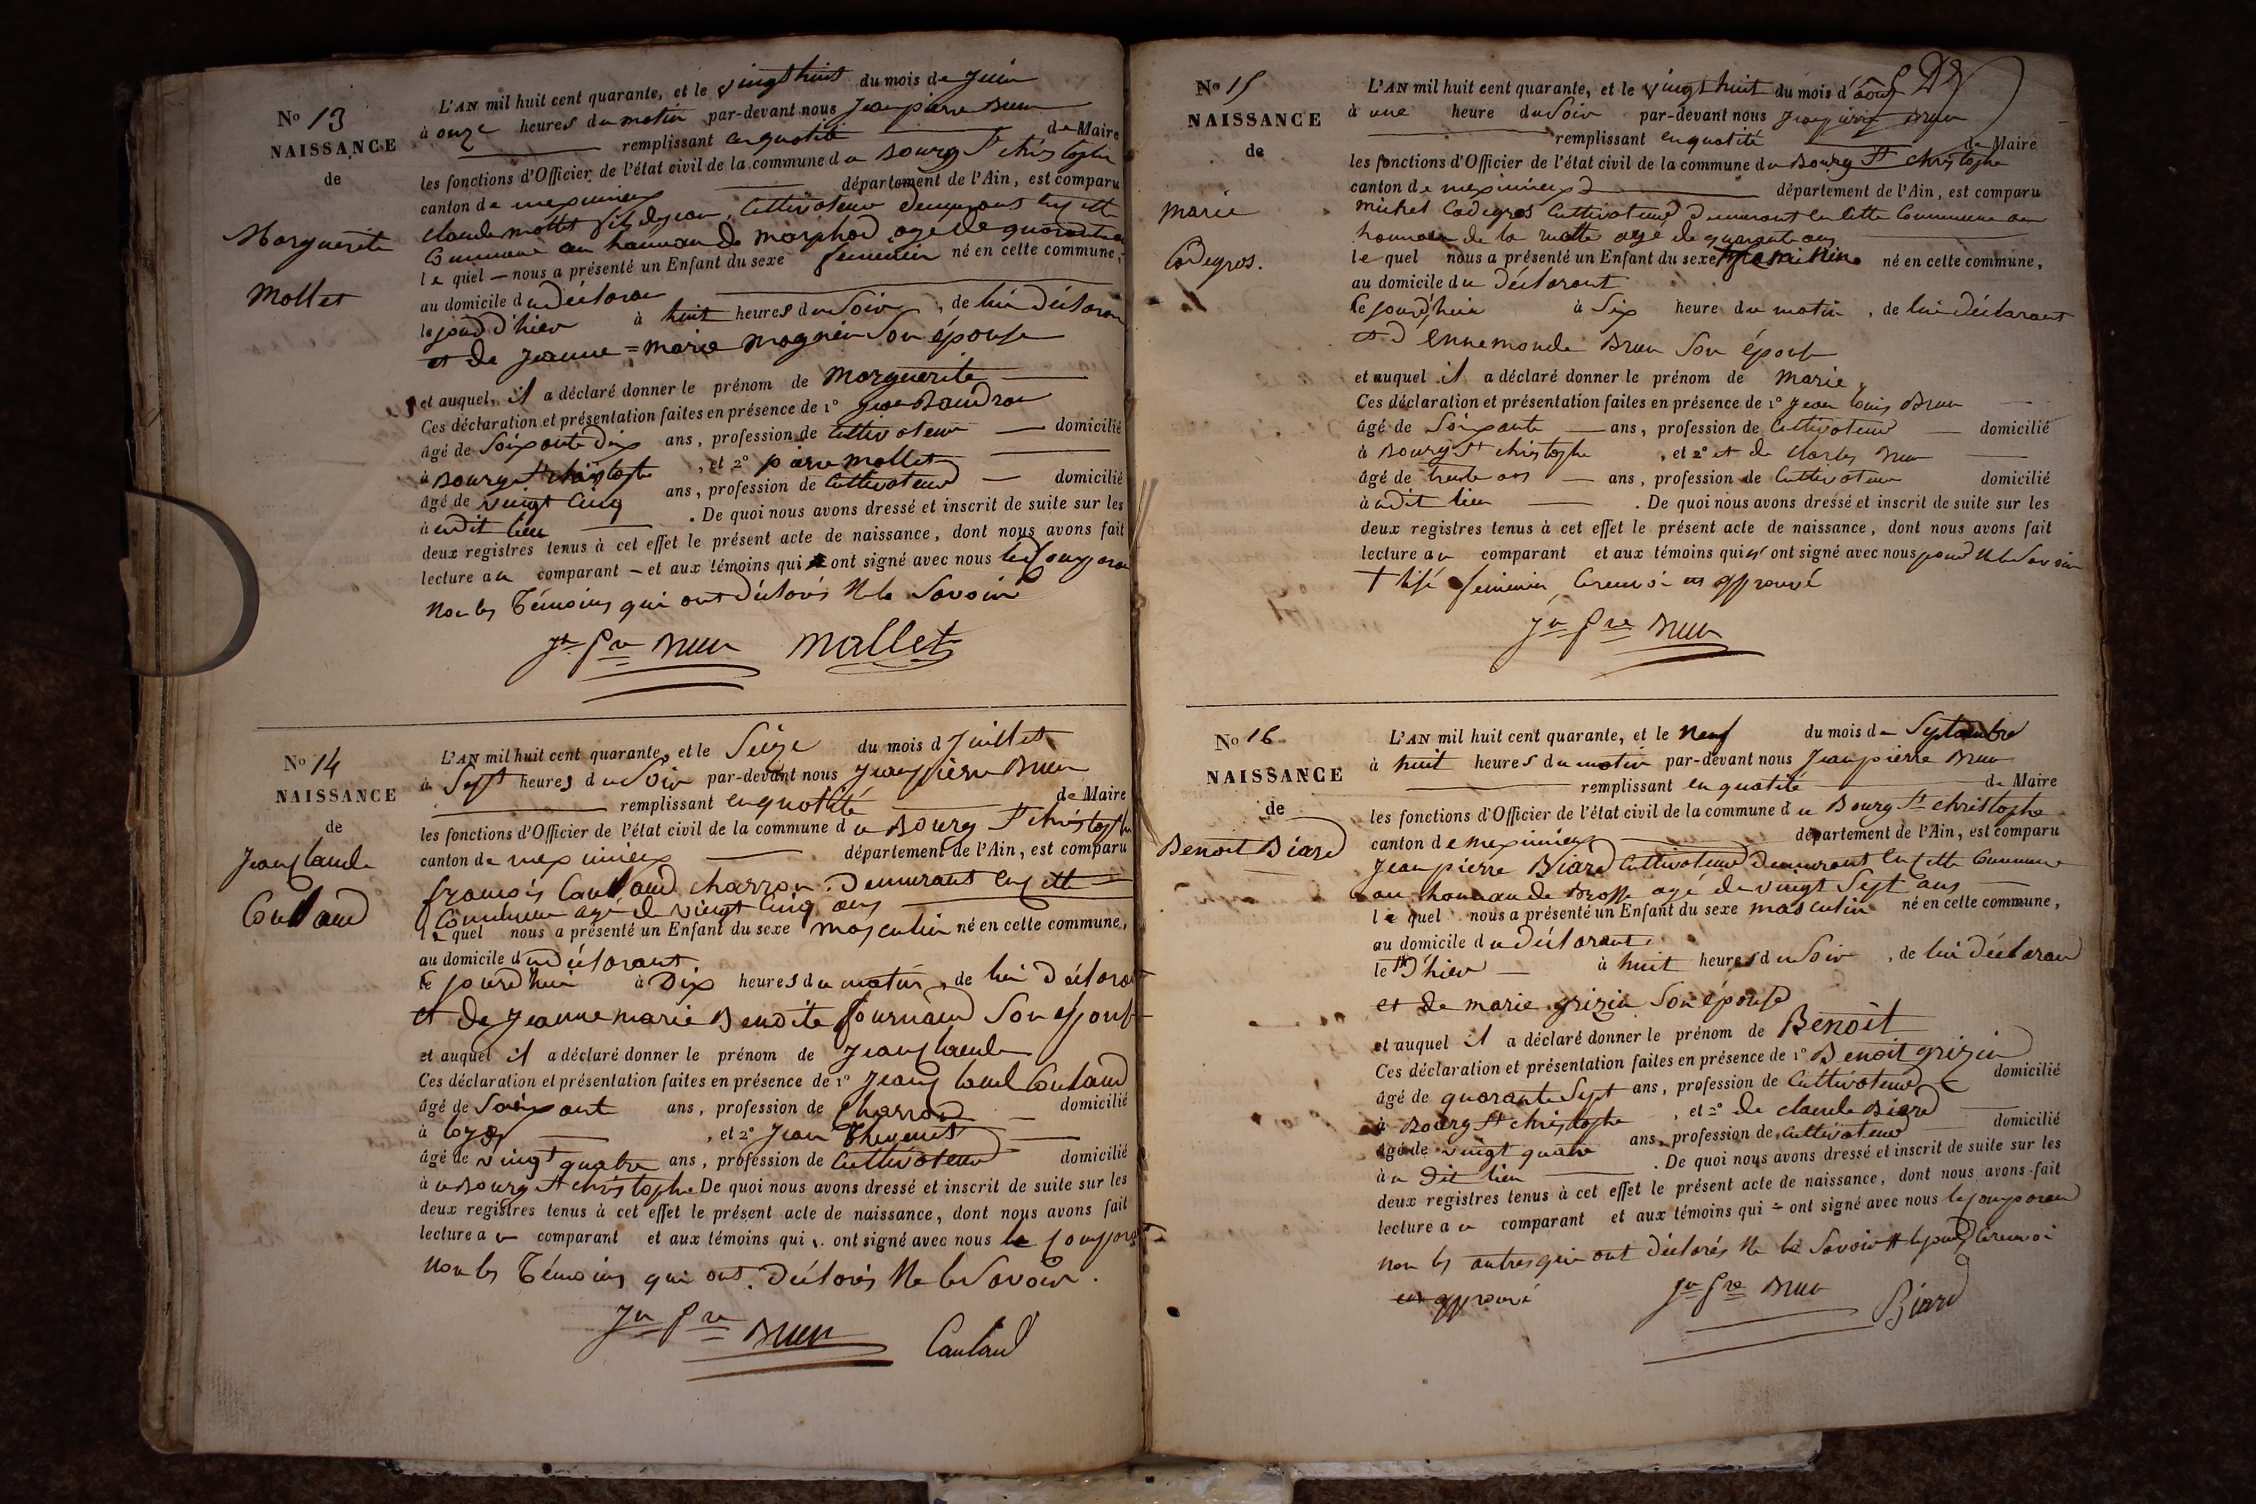 No 13
NAISSANCE
de
Marguerite
Mollet
L'AN mil huit cent quarante, et le vingt huit du mois de Juin
à onze heures du matin par-devant nous Jean pierre Brun
remplissant en qualité de Maire
les fonctions d'Officier de l'état civil de la commune du Bourg St christophe
canton de meximieux département de l'Ain, est comparu
claude mollet fils de jean, Cultivateur demeurant en cette
Commune au hameau de marfhod agé de quarante
le quel nous a présenté un Enfant du sexe feminin né en cette commune,
au domicile du déclarant
le jour d'hier à huit heures du Soir, de lui déclarant
et de Jeanne=Marie magnin Son épouse
et auquel il a déclaré donner le prénom de Marguerite
Ces déclaration et présentation faites en présence de 1º Jean Baudran
âgé de Soixante dix ans, profession de Cultivateur domicilié
à Bourg St christophe, et 2º pierre Mollet
âgé de vingt Cinq ans, profession de Cultivateur domicilié
à udit lieu. De quoi nous avons dressé et inscrit de suite sur les
deux registres tenus à cet effet le présent acte de naissance, dont nous avons fait
lecture au comparant et aux témoins qui ont signé avec nous le Comparan
Non les Témoins qui ont déclarés Ne le Savoir
Jn Pre Brun Mallet
No 14
NAISSANCE
de
Jean Claude
Coutaud
L'AN mil huit cent quarante, et le Seize du mois d Juillet
à Sept heures du Soir par-devant nous Jean pierre Brun
remplissant en qualité de Maire
les fonctions d'Officier de l'état civil de la commune du Bourg St christophe
canton de meximieux département de l'Ain, est comparu
françois Coutaud charron. Demeurant en cette
Commune agé de vingt Cinq ans
le quel nous a présenté un Enfant du sexe masculin né en cette commune,
au domicile du déclarant
le jourd'hui à Dix heures du matin, de lui déclarant
et de Jeanne marie Benoite fournand Son épouse
et auquel il a déclaré donner le prénom de Jean Claude
Ces déclaration et présentation faites en présence de 1º Jean Claude Coutaud
âgé de Soixante ans, profession de Charron domicilié
à loyes, et 2º Jean Thevenet
âgé de vingt quatre ans, profession de Cultivateur domicilié
à u Bourg St christophe De quoi nous avons dressé et inscrit de suite sur les
deux registres tenus à cet effet le présent acte de naissance, dont nous avons fait
lecture au comparant et aux témoins qui ont signé avec nous le Compara
Non les Témoins qui ont Déclarés Ne le Savoir.
Jn Pre Brun Cautaud
No 15
NAISSANCE
de
Marie
Cadegros.
L'AN mil huit cent quarante, et le vingt huit du mois d'août
à une heure du Soir par-devant nous Jean pierre Brun
remplissant en qualité de Maire
les fonctions d'Officier de l'état civil de la commune du Bourg St christophe
canton de meximieux département de l'Ain, est comparu
michel Cadegros Cultivateur Demeurant en Cette Commune au
hameau de la motte agé de quarante ans
le quel nous a présenté un Enfant du sexe feminine né en cette commune,
au domicile du Déclarant
le jourd'hui à Six heure du matin, de lui déclarant
et d Ennemonde Brun Son épouse
et auquel il a déclaré donner le prénom de Marie
Ces déclaration et présentation faites en présence de 1º Jean louis Brun
âgé de Soixante ans, profession de Cultivateur domicilié
à Bourg St christophe, et 2º et de charles Brun
âgé de trente ans ans, profession de Cultivateur domicilié
à udit lieu. De quoi nous avons dressé et inscrit de suite sur les
deux registres tenus à cet effet le présent acte de naissance, dont nous avons fait
lecture au comparant et aux témoins qui n'ont signé avec nous pour Ne le Savoir
feminin le renvoi est approuvé
Jn Pre Brun
No 16
NAISSANCE
de
Benoit Biard
L'AN mil huit cent quarante, et le Neuf du mois de Septembre
à huit heures du matin par-devant nous Jean pierre Brun
remplissant en qualité de Maire
les fonctions d'Officier de l'état civil de la commune du Bourg St christophe
canton de meximieux département de l'Ain, est comparu
Jean pierre Biard Cultivateur Demeurant en Cette Commune
au hameau de Brosse agé de vingt Sept ans
le quel nous a présenté un Enfant du sexe masculin né en cette commune,
au domicile du déclarant
le d'hier à huit heures du Soir, de lui déclaran
et de marie grizin Son épouse
et auquel il a déclaré donner le prénom de Benoit
Ces déclaration et présentation faites en présence de 1º Benoit grizin
âgé de quarante Sept ans, profession de Cultivateur domicilié
à Bourg St christophe, et 2º de claude Biard
âgé de vingt quatre ans, profession de Cultivateur domicilié
à u Dit lieu. De quoi nous avons dressé et inscrit de suite sur les
deux registres tenus à cet effet le présent acte de naissance, dont nous avons fait
lecture au comparant et aux témoins qui ont signé avec nous le Comparan
Non les autres qui ont déclarés Ne le Savoir le jour le renvoi
est approuvé
Jn Pre Brun Biard